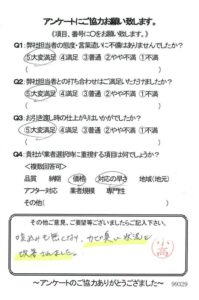 アンケートにご協力お願い致します。
(項目、番号に○をお願い致します。)
Q1：弊社担当者の態度・言葉遣いに不備はありませんでしたか？
⑤大変満足 ④満足 ③普通 ②やや不満 ①不満
( )
Q2：弊社担当者との打ち合わせはご満足いただけましたか？
⑤大変満足 ④満足 ③普通 ②やや不満 ①不満
( )
Q3：お引き渡し時の仕上がりはいかがでしたか？
⑤大変満足 ④満足 ③普通 ②やや不満 ①不満
( )
Q4：貴社が業者選択時に重視する項目は何でしょうか？
<複数回答可>
品質 納期 価格 対応の早さ 地域(地元)
アフター対応 業者規模 専門性
その他( )
その他ご意見、ご要望等ございましたらご記入下さい。
カビ臭い状況も
改善されました。
～アンケートのご協力ありがとうございました～
99029